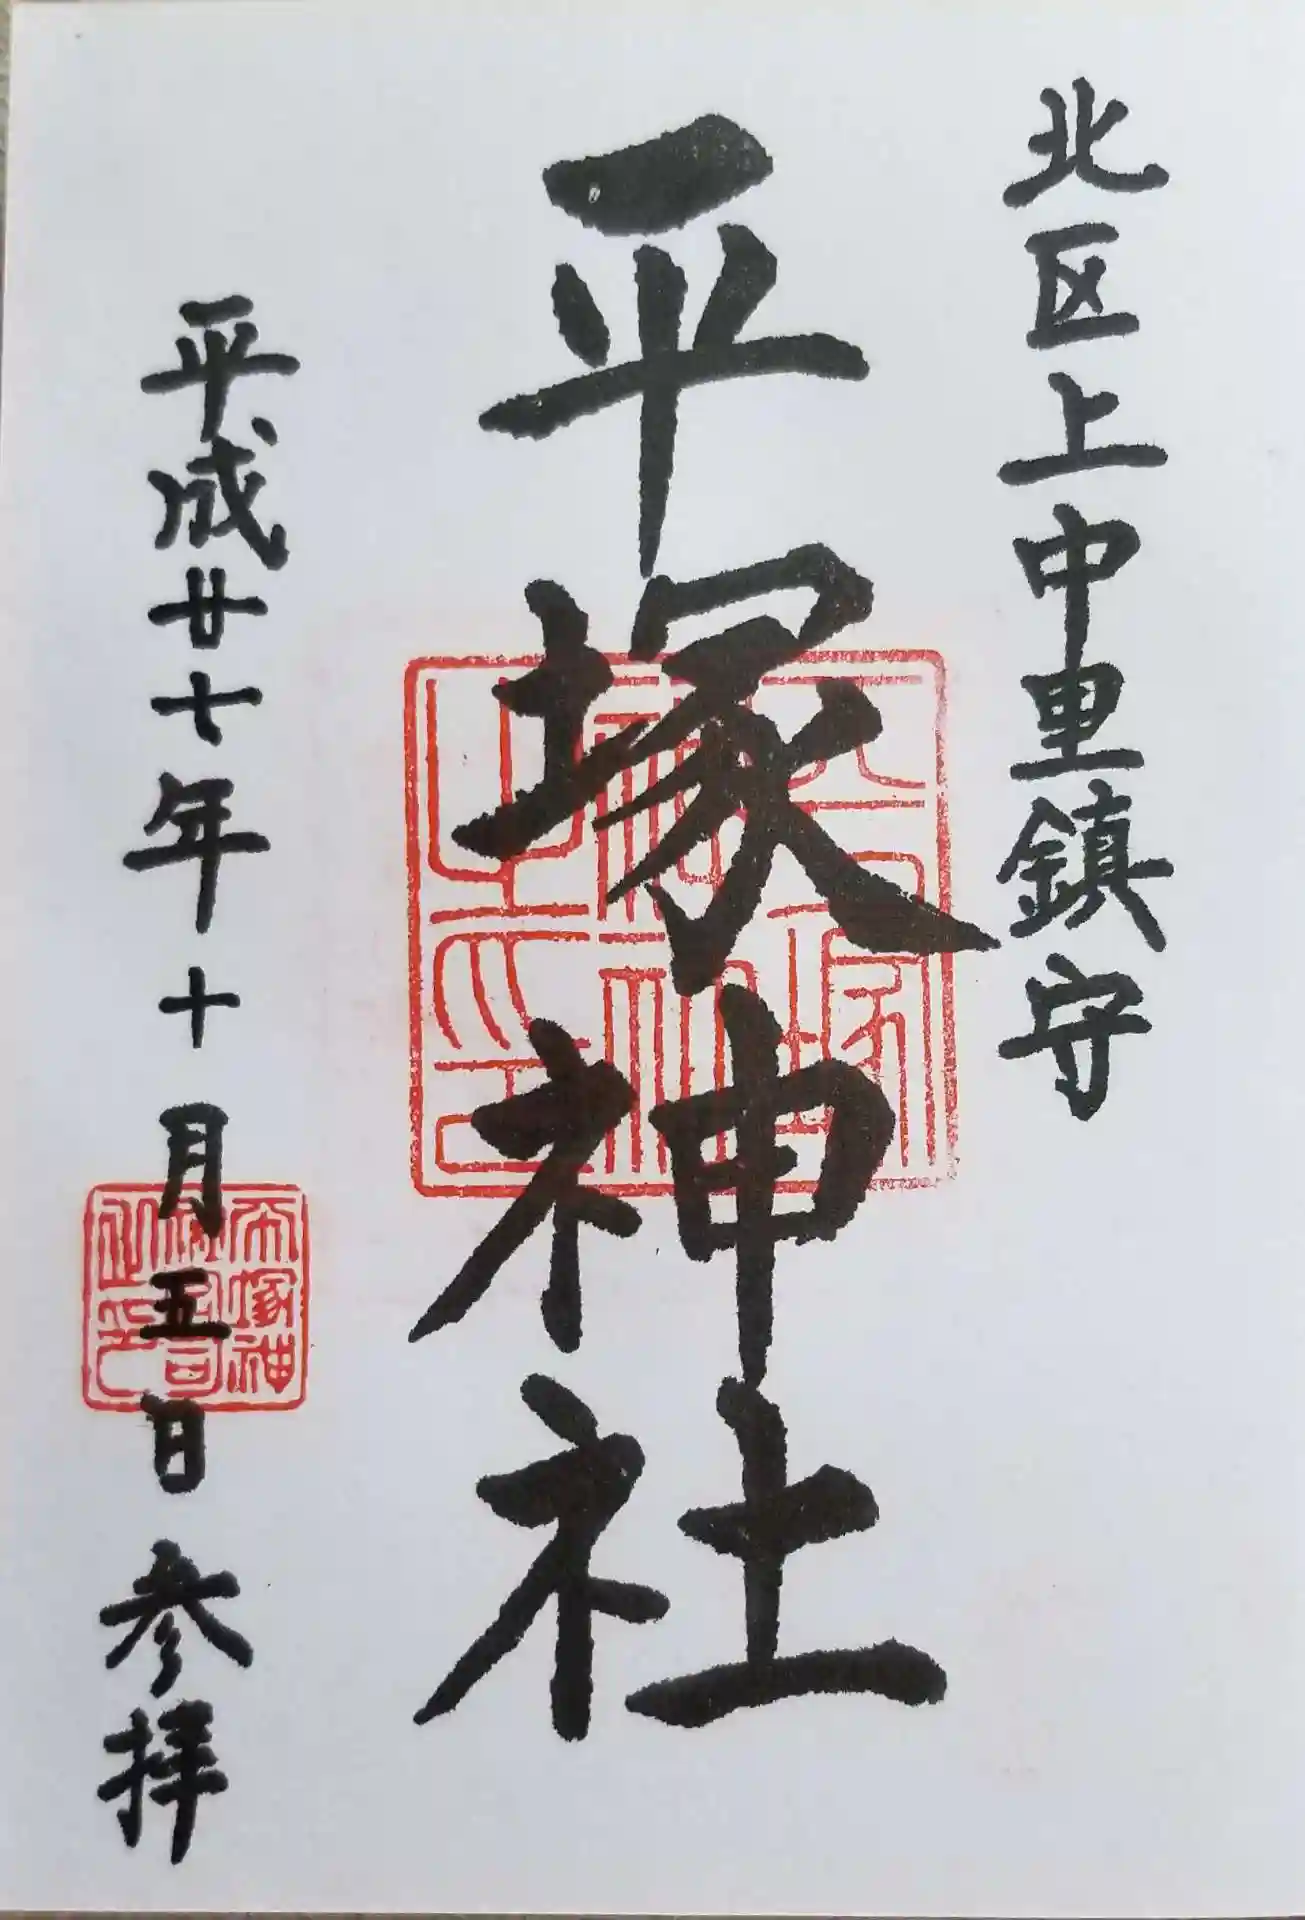 北区上中里鎮守
平塚神社
平塚神社之印
平成廿七年十月五日参拝
平塚神社宮司之印